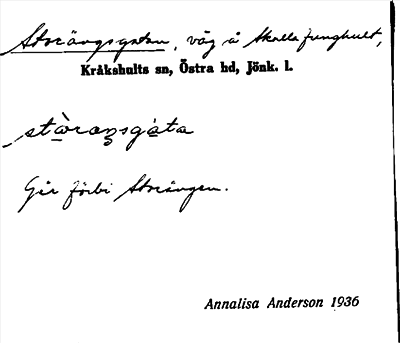 Storängsgatan, väg å Skalla Ljunghult,
Kråkshults sn, Östra hd, Jönk. l.
stòraŋsgáta
Går förbi Storängen.
Annalisa Anderson 1936